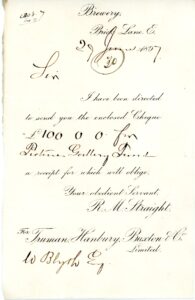 Brewery,
Brick Lane, E.
29 1897
Sir
I have been directed
to send you the enclosed Cheque
£100 0 0 for
Picture Gallery Fund
a receipt for which will oblige.
Your obedient Servant,
R. M. Straight.
For Truman, Hanbury, Buxton & Co.
Limited.
W Blyth Esq